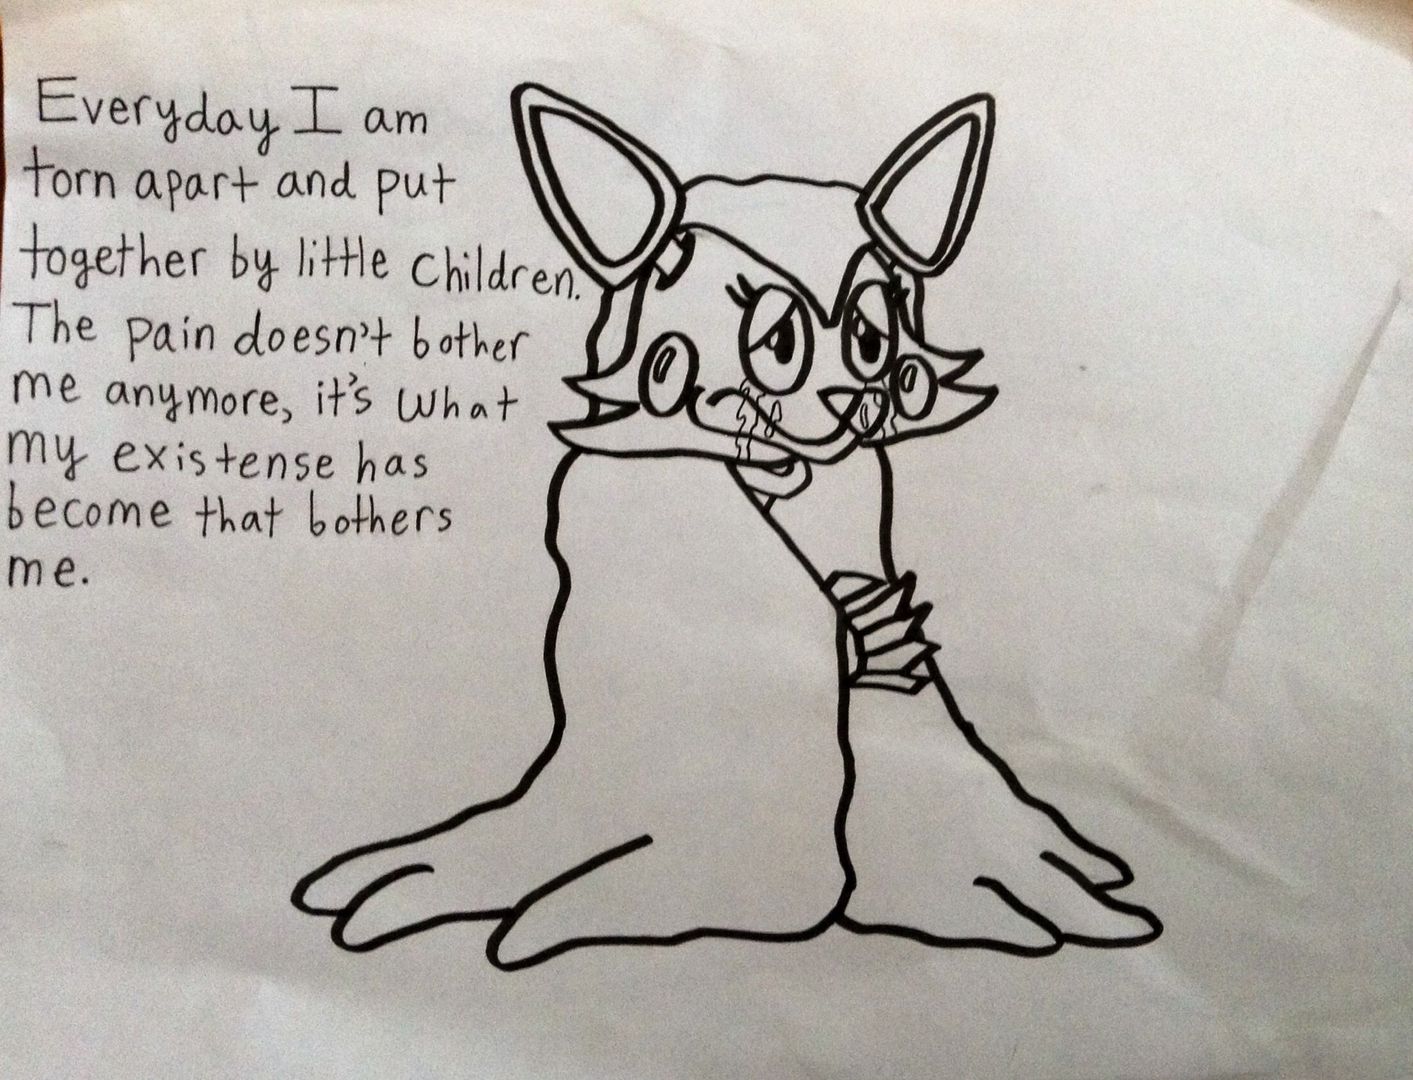 Everyday I am
torn apart and put
together by little children.
The pain doesn't bother
me anymore, it's what
my existense has
become that bothers
me.